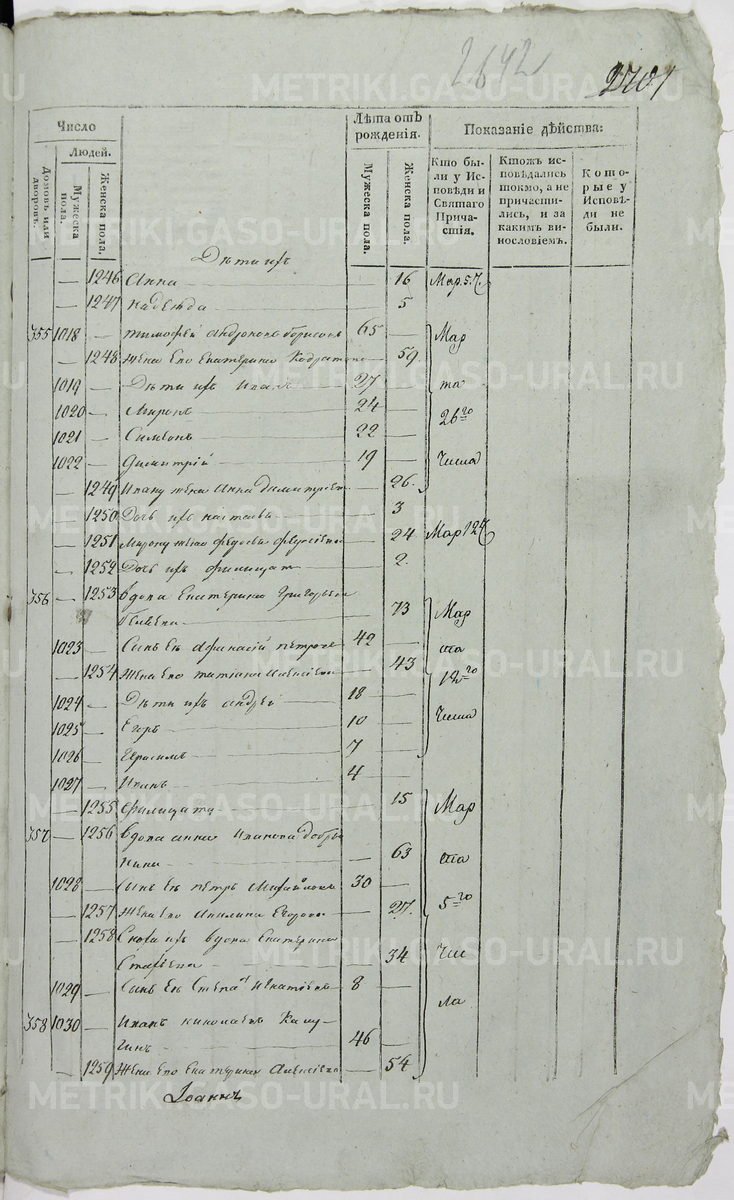 2642
2701
METRIKI.GASO-URAL.RU
Число
Людей.
Домовъ или дворовъ.
Мужеска пола.
Женска пола.
Лѣта отъ рожденія.
Мужеска пола.
Женска пола.
Показаніе дѣйства:
Кто были у Исповѣди и Святаго Причастія.
Ктожъ исповѣдались токмо, а не причастились, и за какимъ винословіемъ.
Которые у Исповѣди не были.
Дѣти ихъ
— 1246 Анна — 16 Мар. 5.
— 1247 Надежда — 5
355 1018 — Тимофей Борисовъ 65 — Мар
— 1248 Жена его Екатерина 59
1019 — Дѣти ихъ Иванъ 27 — та
1020 — Миронъ 24 —
1021 — Симеонъ 22 — 26го
1022 — Димитрій 19 — Числа
— 1249 Ивану жена Анна Димитріева — 26
— 1250 Дочь ихъ — 3
— 1251 Мирону жена Федосья — 24 Мар 12
— 1252 Дочь ихъ — 2
356 — 1253 Вдова Екатерина Григорьева
— 73 Мар
1023 — Сынъ ея Афанасій Петровъ 42 — та
— 1254 Жена его Татіана Алексіева — 43
1024 — Дѣти ихъ Андрей 18 — 12го
1025 — Егоръ 10 — Числа
1026 — Герасимъ 7 —
1027 — Иванъ 4 —
— 1255 Филицата — 15 Мар
357 — 1256 Вдова Анна Иванова Добры
нина — 63 та
1028 — Сынъ ея Петръ Михайловъ 30 —
— 1257 Жена его Акилина Егорова — 27 5го
— 1258 Сноха ихъ вдова Екатерина
— 34 Чис
1029 — Сынъ ея Степанъ Игнатіевъ 8 — ла
358 1030 — Иванъ Николаевъ Калу
гинъ 46 —
— 1259 Жена его Екатерина Алексіева — 54
Іоаннъ
METRIKI.GASO-URAL.RU